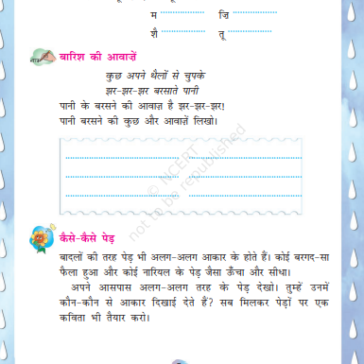 म .................... ज़ि ....................
शै .................... तू ....................
बारिश की आवाज़ें
कुछ अपने थैलों से चुपके
झर-झर-झर बरसाते पानी
पानी के बरसने की आवाज़ है झर-झर-झर!
पानी बरसने की कुछ और आवाज़ें लिखो।
© NCERT
not to be republished
कैसे-कैसे पेड़
बादलों की तरह पेड़ भी अलग-अलग आकार के होते हैं। कोई बरगद-सा
फैला हुआ और कोई नारियल के पेड़ जैसा ऊँचा और सीधा।
अपने आसपास अलग-अलग तरह के पेड़ देखो। तुम्हें उनमें
कौन-कौन से आकार दिखाई देते हैं? सब मिलकर पेड़ों पर एक
कविता भी तैयार करो।